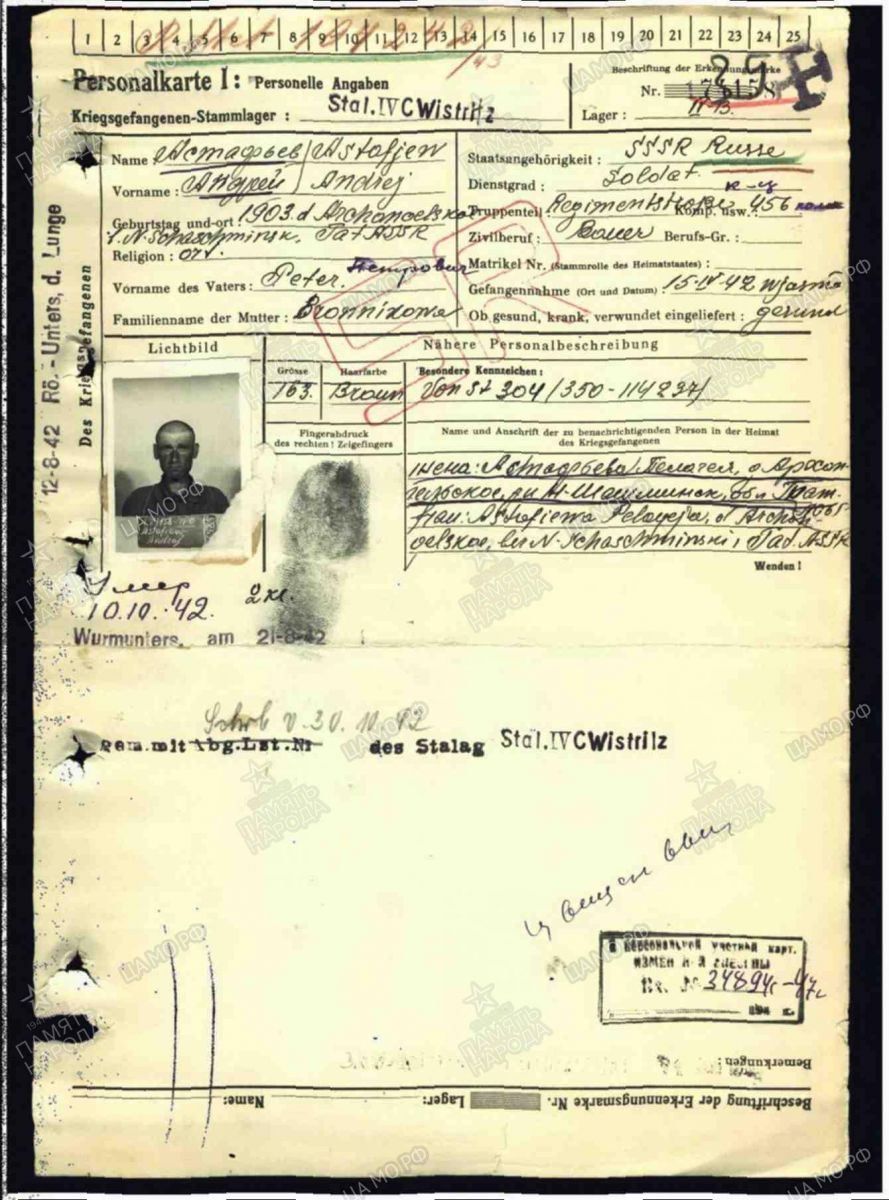 1 2 3 4 5 6 7 8 9 10 11 12 13 14 15 16 17 18 19 20 21 22 23 24 25
Personalkarte I: Personelle Angaben
Kriegsgefangenen-Stammlager: Stal. IV C Wistritz
Beschriftung der Erkennungsmarke
Nr.
Lager:
Des Kriegsgefangenen
Name: Астафьев / Astafjew
Vorname: Андрей / Andrej
Geburtstag und-ort: 1903. d Archangelskoe
r. N. Schaschminsk, Tat ASSR
Religion: ort.
Vorname des Vaters: Peter. Петрович
Familienname der Mutter: Bronnikowa
Staatsangehörigkeit: SSSR Russe
Dienstgrad: Soldat
Truppenteil: Regimentstrosse Komp. usw.: 456
Zivilberuf: Bauer Berufs-Gr.:
Matrikel Nr. (Stammrolle des Heimatstaates):
Gefangennahme (Ort und Datum): 15-IV-42 Wjasma
Ob gesund, krank, verwundet eingeliefert: gesund
12-8-42 Rö.-Unters, d. Lunge
Lichtbild
Nähere Personalbeschreibung
Grösse
163.
Haarfarbe
Braun
Besondere Kennzeichen:
Von St 304 (350-114237)
Fingerabdruck
des rechten! Zeigefingers
Name und Anschrift der zu benachrichtigenden Person in der Heimat
des Kriegsgefangenen
жена: Астафьева Пелагея, д Архан-
гельское, рн Н-Шашминск,
Frau: Astafiewa Pelageja, d Archan-
gelskoe, N. Schaschminski, Tat. ASSR
Wenden!
Умер
10.10.42.
Wurmunters, am 21-8-42
v. 30. 10. 42
gem. mit Abg. Lst. Nr des Stalag Stal. IV C Wistritz
К ПЕРСОНАЛЬНОЙ УЧЕТНОЙ КАРТ.
Вх. № 34894с-47г
194 г.
Bemerkungen:
Beschriftung der Erkennungsmarke Nr. Lager: Name:
ПАМЯТЬ НАРОДА
ЦАМО.РФ